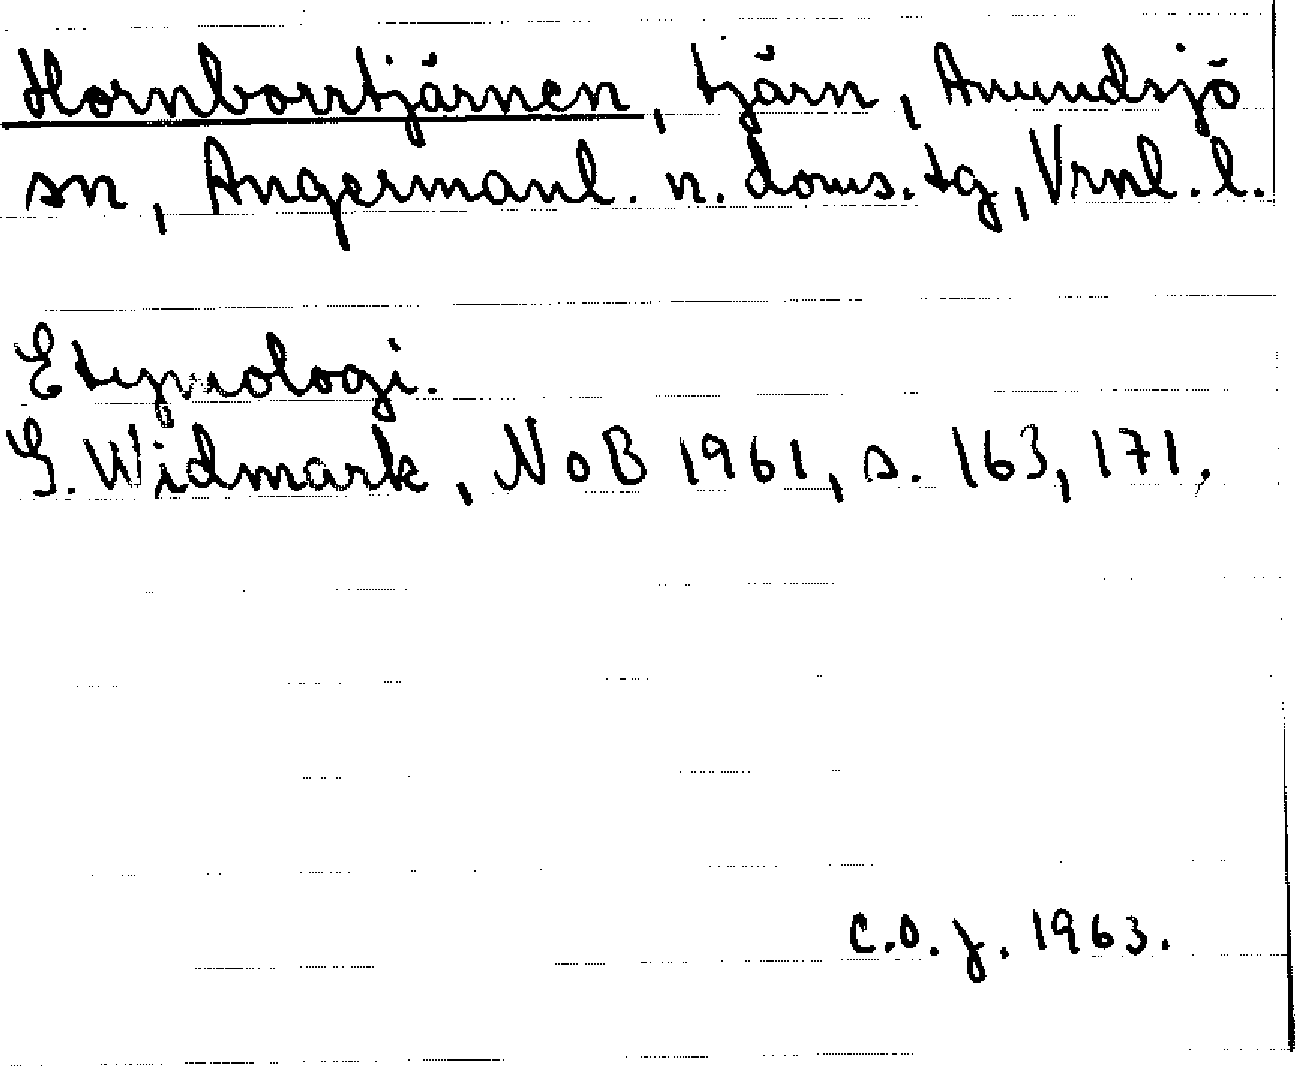 Hornborrtjärnen, tjärn, Anundsjö
sn, Ångermanl. n. doms. tg, Vrnl. l.
Etymologi.
G. Widmark, NoB 1961, s. 163, 171,
C.O. J. 1963.